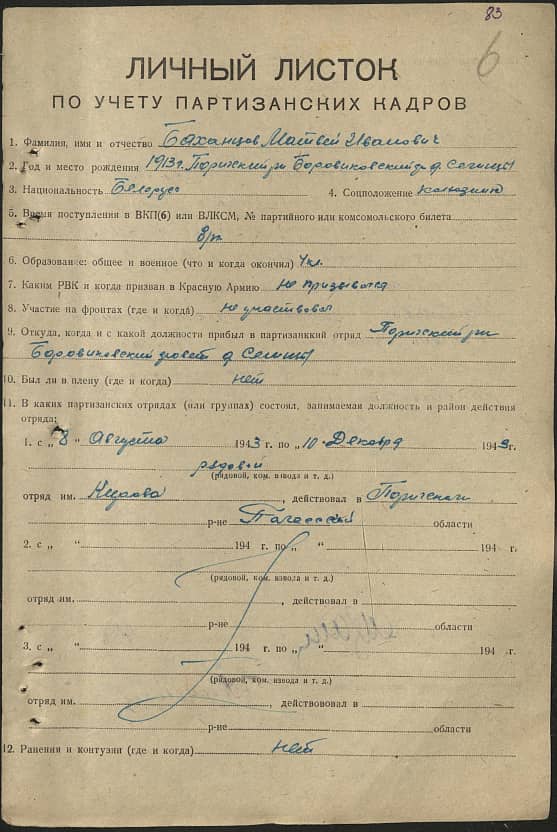 83
6
ЛИЧНЫЙ ЛИСТОК
ПО УЧЕТУ ПАРТИЗАНСКИХ КАДРОВ
1. Фамилия, имя и отчество Баханцов Матвей Иванович
2. Год и место рождения 1913 г. Паричский р-н Боровиковский с/с д. Селищы
3. Национальность Белорус 4. Соцположение
5. Время поступления в ВКП(б) или ВЛКСМ, № партийного или комсомольского билета
б/п
6. Образование: общее и военное (что и когда окончил) 4 кл.
7. Каким РВК и когда призван в Красную Армию не призывался
8. Участие на фронтах (где и когда) не участвовал
9. Откуда, когда и с какой должности прибыл в партизанккий отряд Паричский р-н
Боровиковский д. Селищы
10. Был ли в плену (где и когда) нет
11. В каких партизанских отрядах (или группах) состоял, занимаемая должность и район действия
отряда:
1. с „ 8 “ Августа 1943 г. по „ 10 “ Декабря 1943 г.
рядовой
(рядовой, ком. взвода и т. д.)
отряд им. Кирова, действовал в Паричском
р-не Полесской области
2. с „ “ 194 г. по „ “ 194 г.
(рядовой, ком. взвода и т. д.)
отряд им. , действовал в
р-не области
3. с „ “ 194 г. по „ “ 194 г.
(рядовой, ком. взвода и т. д.)
отряд им. , действововал в
р-не области
12. Ранения и контузии (где и когда) нет